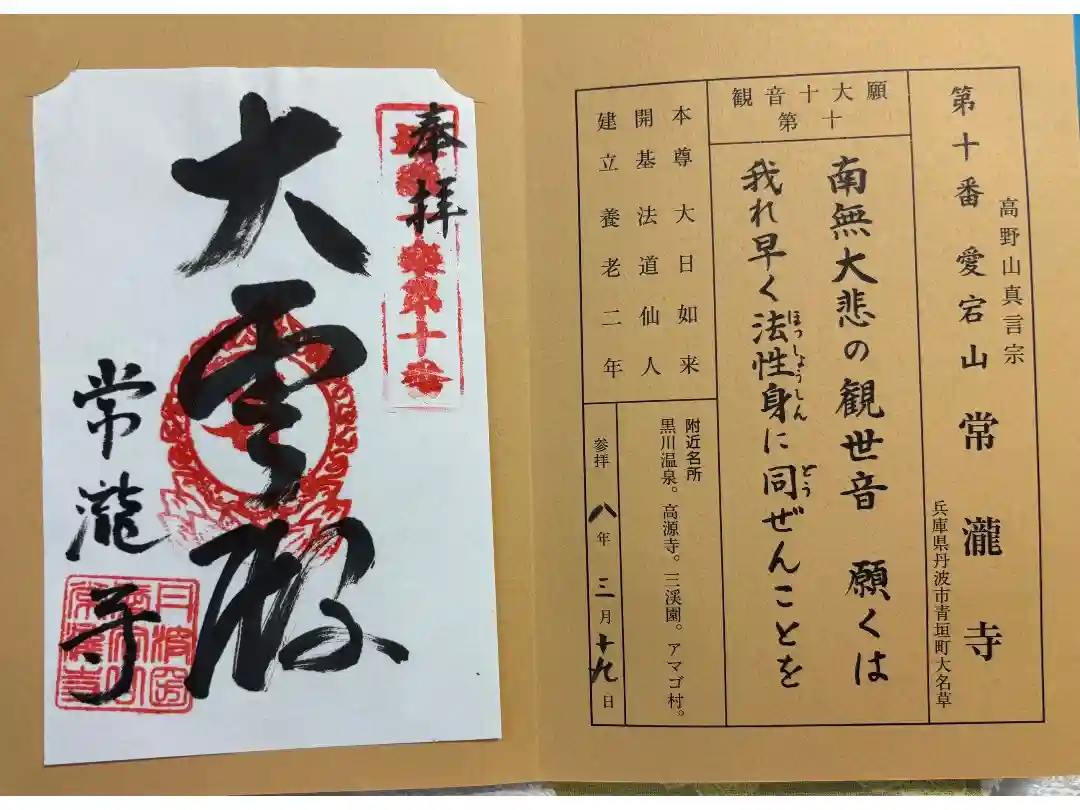 第十番 愛宕山 常瀧寺
高野山真言宗
兵庫県丹波市青垣町大名草
観音十大願
第十
南無大悲の観世音 願くは
我れ早く法性身に同ぜんことを
ほっしょうしん
どう
本尊 大日如来
開基 法道仙人
建立 養老二年
附近名所
黒川温泉。高源寺。三溪園。アマゴ村。
参拝 八年 三月 十九日
奉拝
第十番
大雲殿
常瀧寺